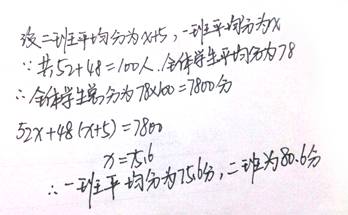 设二班平均分为x+5,一班平均分为x
∵共52+48=100人.全体学生平均分为78
∴全体学生总分为78×100=7800分
52x+48(x+5)=7800
x=75.6
∴一班平均分为75.6分,二班为80.6分